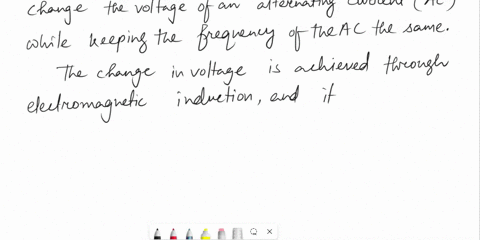 change the voltage of an alternating current (AC)
while keeping the frequency of the AC the same.
The change in voltage is achieved through
electromagnetic induction, and it